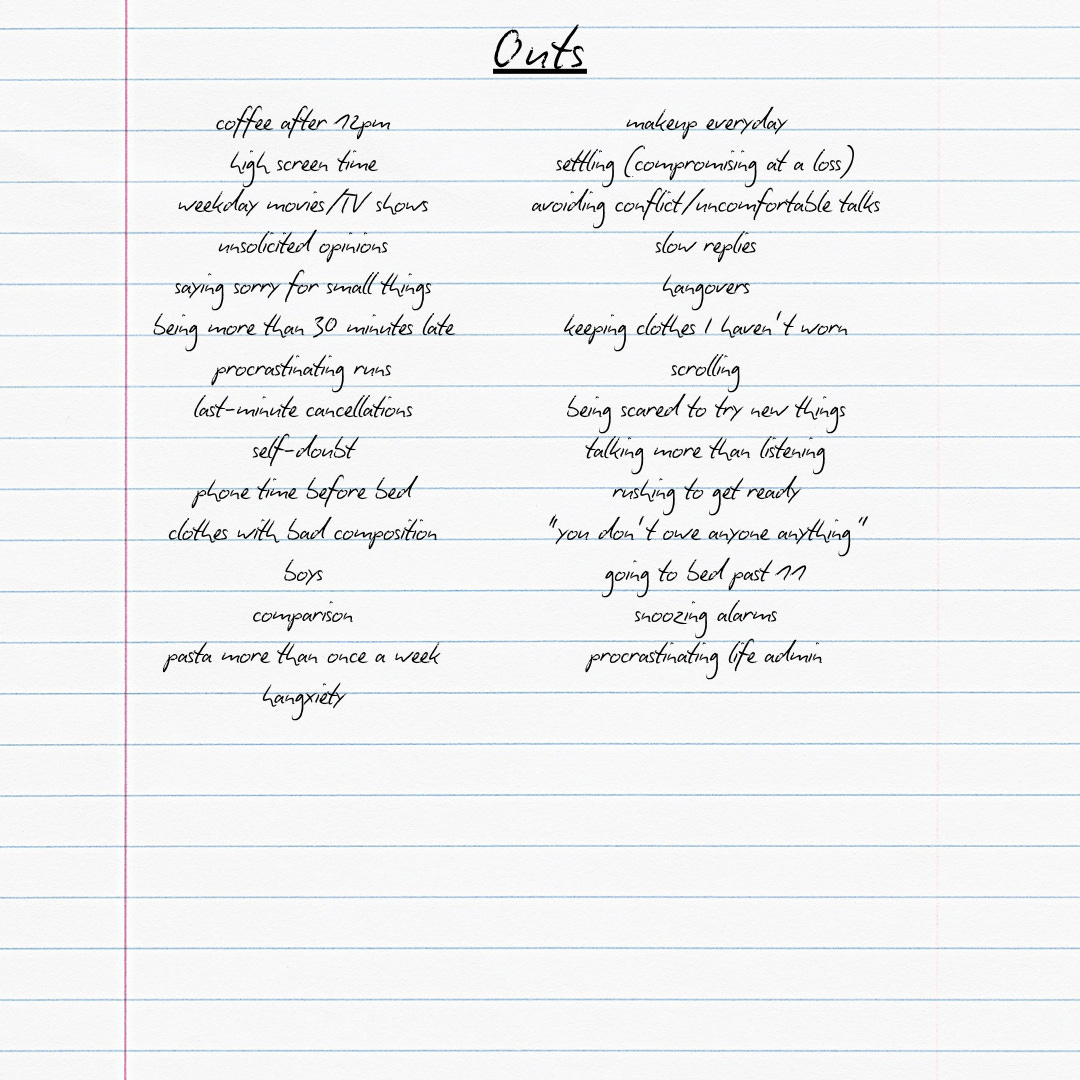 Outs
coffee after 12pm
high screen time
weekday movies/TV shows
unsolicited opinions
saying sorry for small things
being more than 30 minutes late
procrastinating runs
last-minute cancellations
self-doubt
phone time before bed
clothes with bad composition
boys
comparison
pasta more than once a week
hangxiety
makeup everyday
settling (compromising at a loss)
avoiding conflict/uncomfortable talks
slow replies
hangovers
keeping clothes I haven't worn
scrolling
being scared to try new things
talking more than listening
rushing to get ready
"you don't owe anyone anything"
going to bed past 11
snoozing alarms
procrastinating life admin